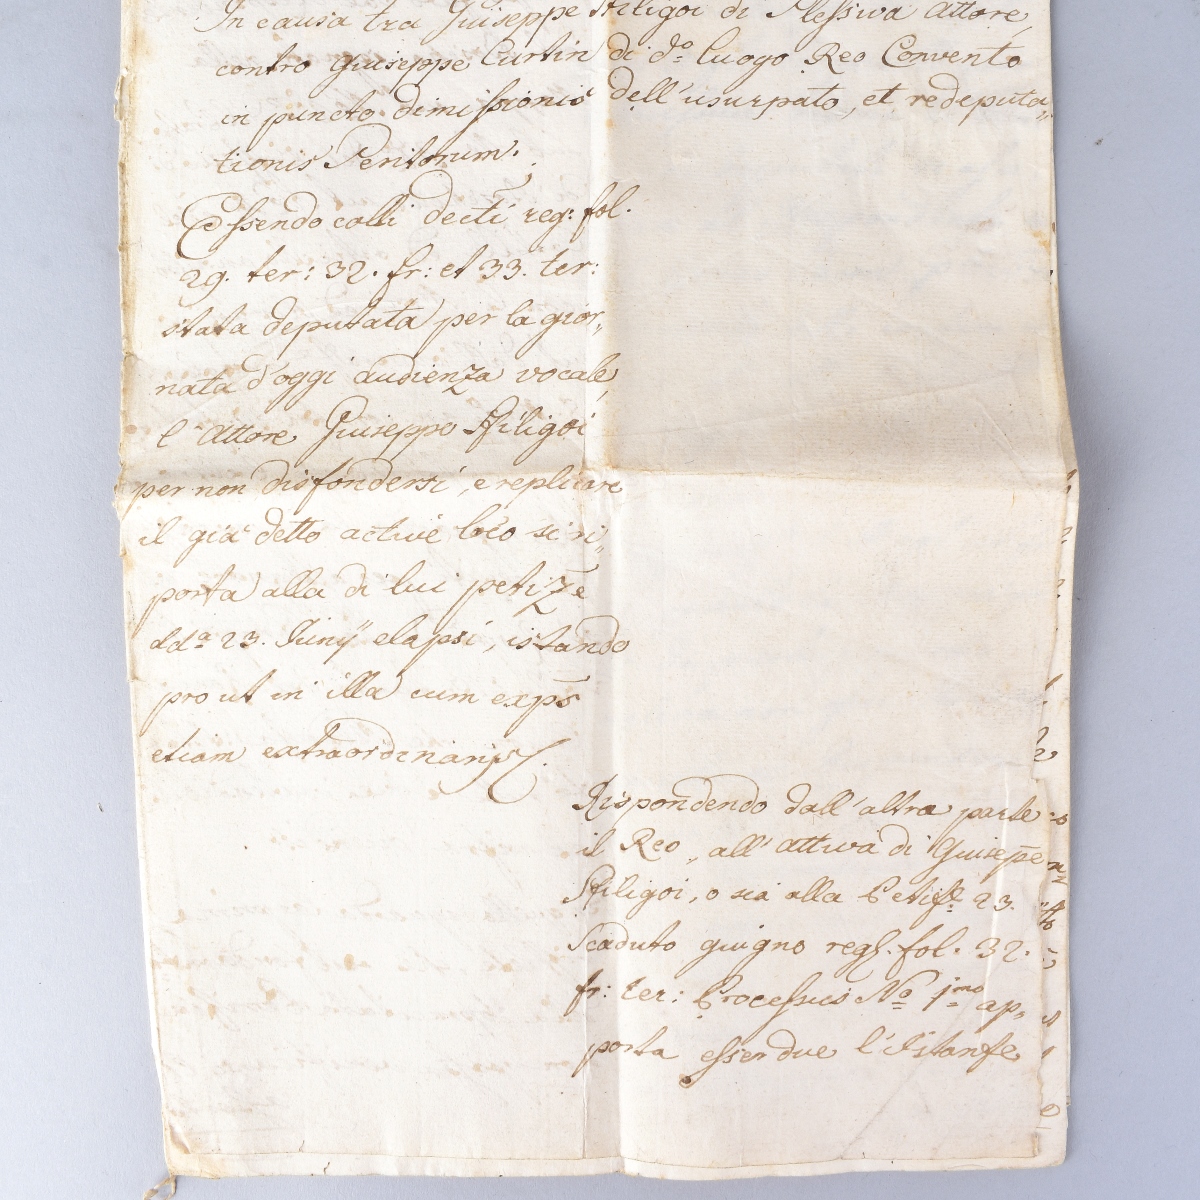 In causa tra Giuseppe Stiligoi di Plessiva Attore
contro Giuseppe Curtin di d.o luogo Reo Convento
in puncto dimissionis dell'usurpato, et redeputa„
tionis Peritorum.
Essendo colli decti reg: fol.
29. ter: 32. fr: et 33. ter:
stata deputata per la gior„
nata d'oggi audienza vocale,
l'Attore Giuseppe Stiligoi
per non disfondersi, e replicare
il già detto active lreo si ri„
porta alla di lui petizē
dd.a 23. Junÿ elapsi, istando
pro ut in illa cum expīs
etiam extraordinarijs.
Rispondendo dall'altra parte
il Reo, all'attiva di Giusepe
Stiligoi, o sia alla Petiz.e 23.
Scaduto giugno reg. fol. 32.
fr: ter: Processus No 1mo ap„
porta esser due l'istanze